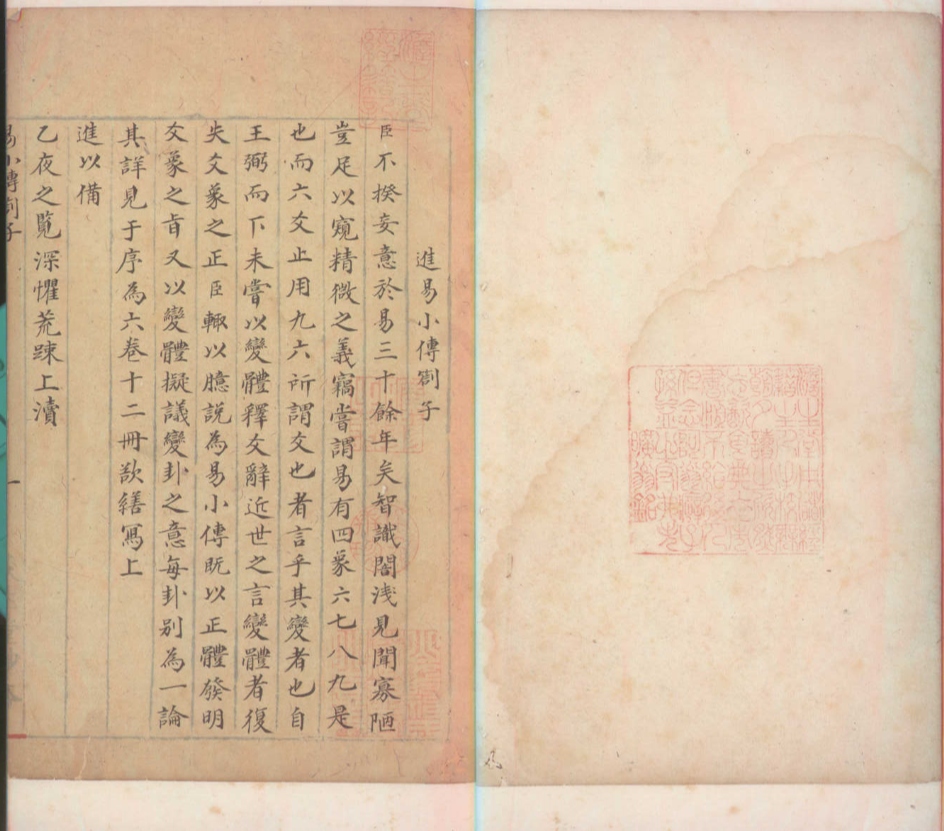 進易小傳劄子
臣不揆妄意於易三十餘年矣智識闇淺見聞寡陋
豈足以窺精微之義竊嘗謂易有四象六七八九是
也而六爻止用九六所謂爻也者言乎其變者也自
王弼而下未嘗以變體釋爻辭近世之言變體者復
失爻象之正臣輙以臆説為易小傳既以正體發明
爻象之㫖又以變體擬議變卦之意每卦别為一論
其詳見于序為六卷十二冊欵繕寫上
進以備
乙夜之覧深懼荒踈上瀆
易小傳劄子
一